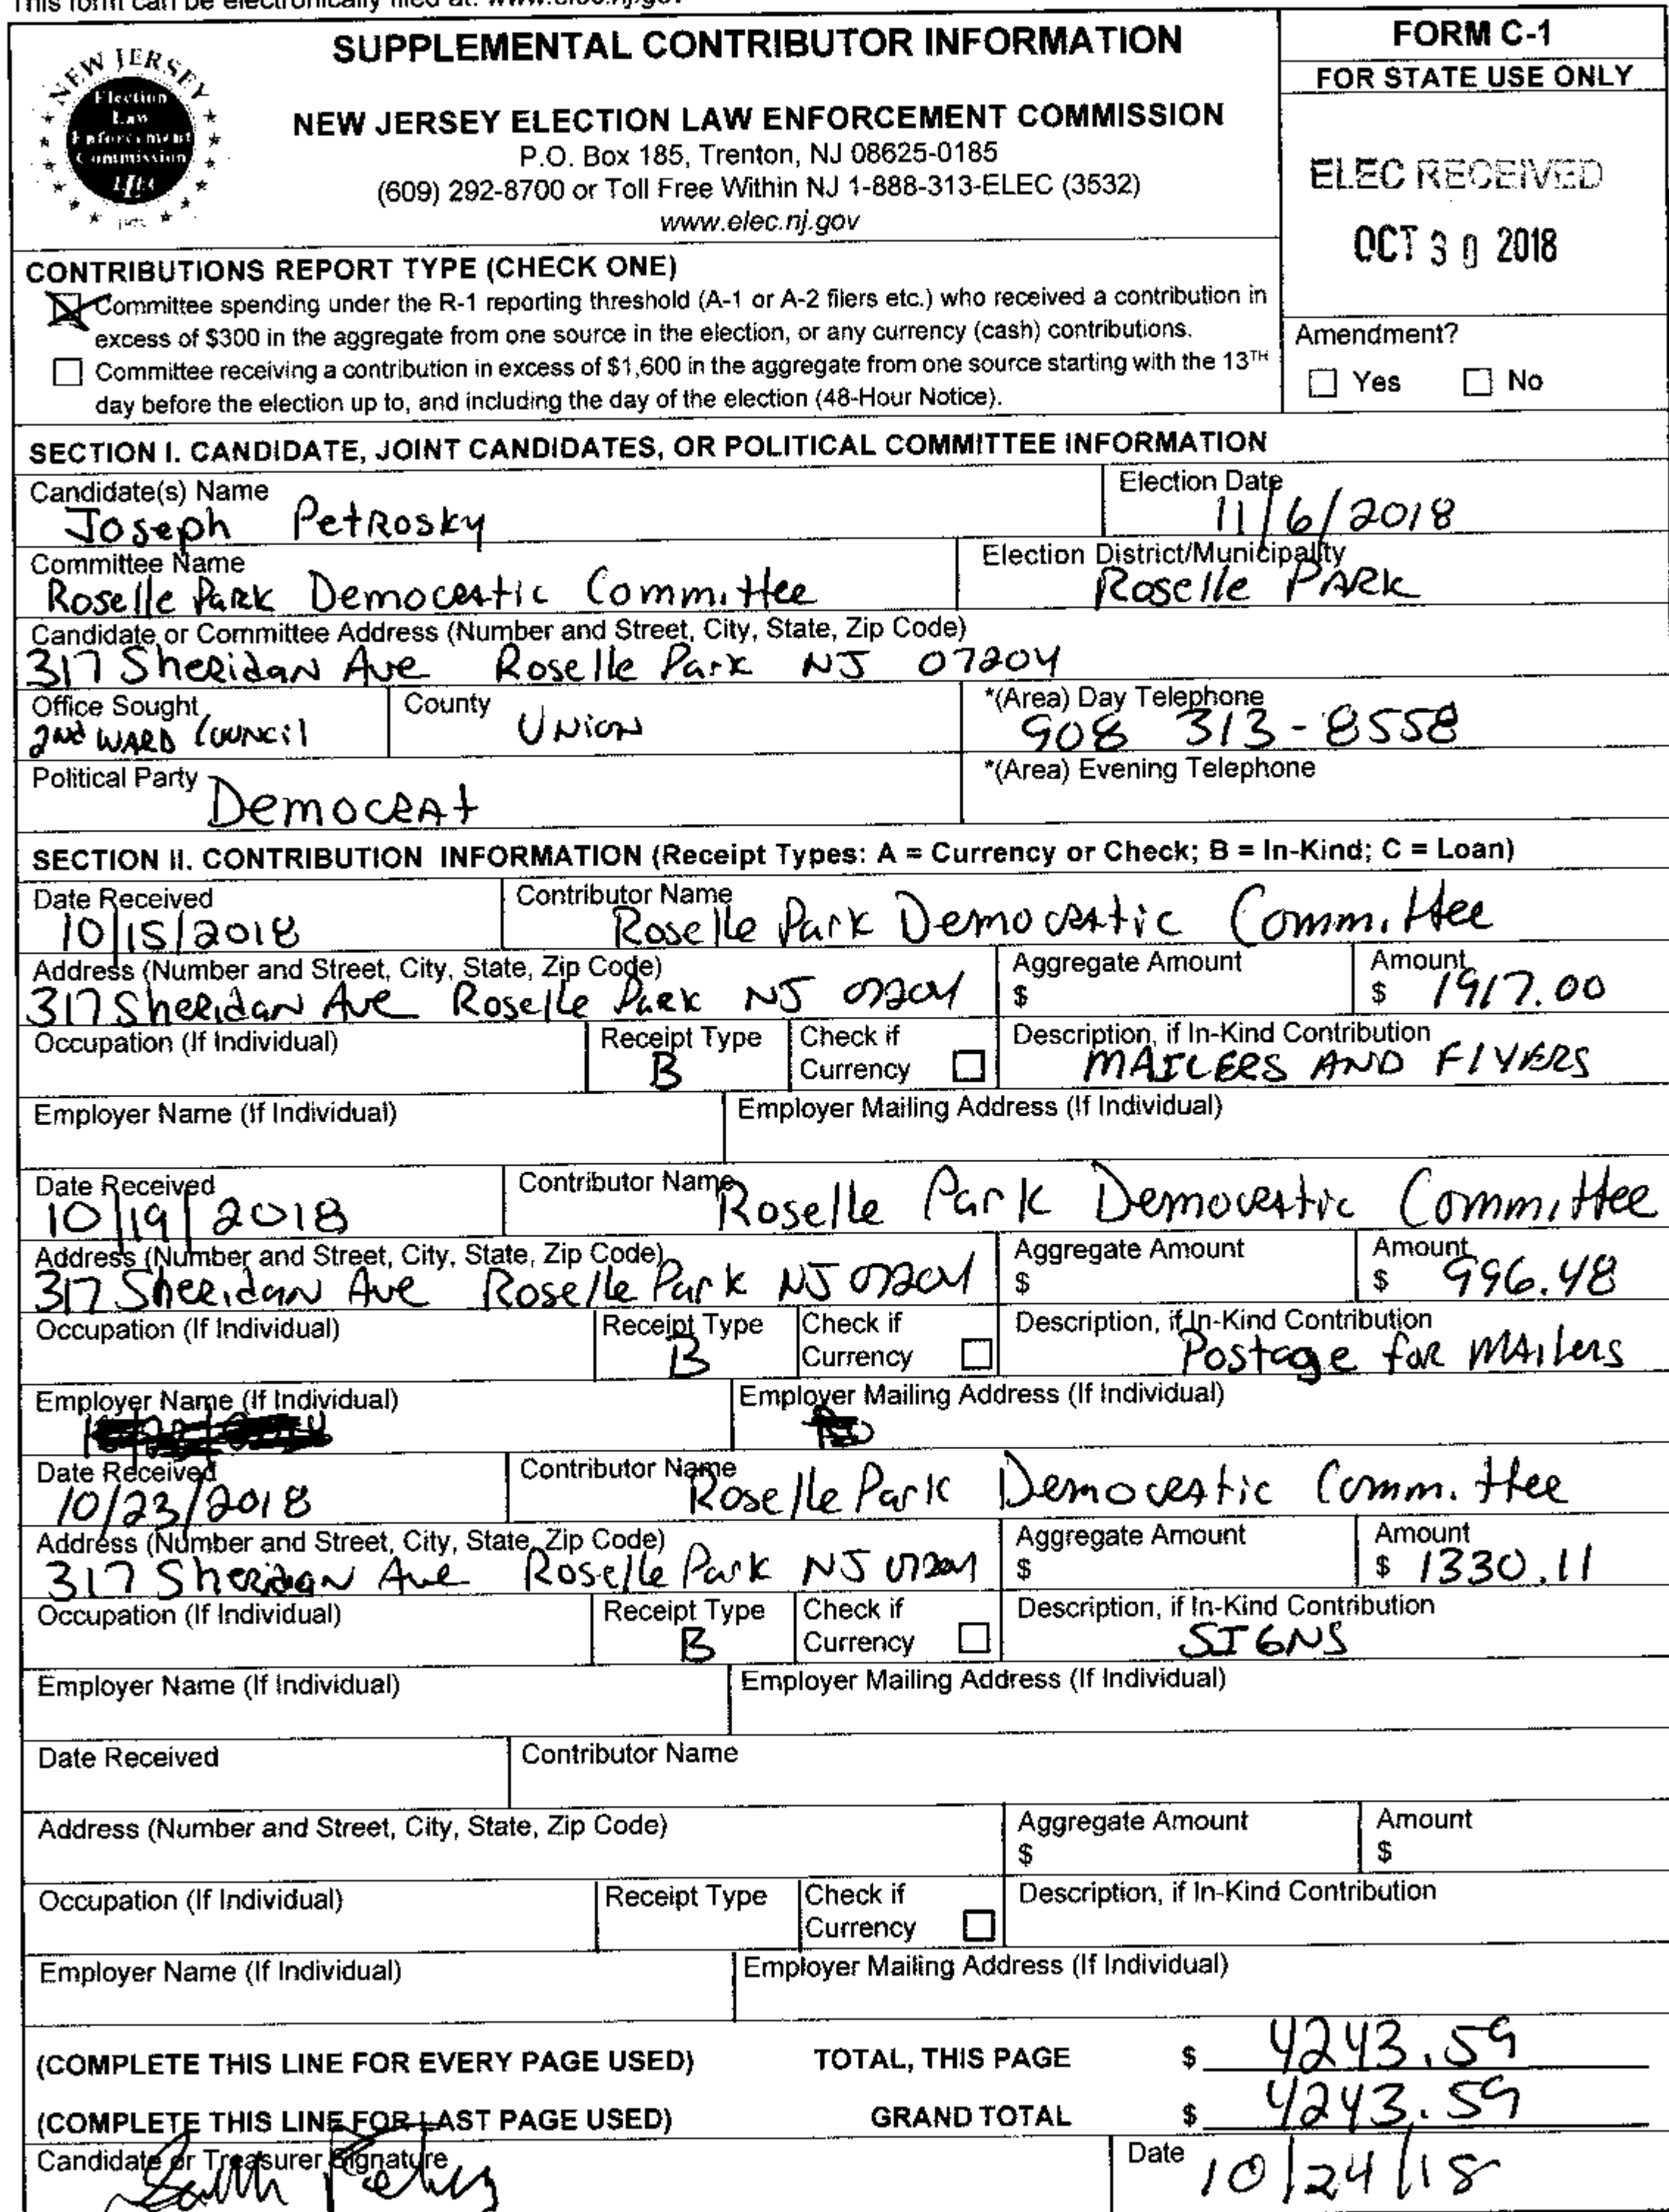 This form can be electronically filed at: www.elec.nj.gov
SUPPLEMENTAL CONTRIBUTOR INFORMATION
FORM C-1
FOR STATE USE ONLY
NEW JERSEY
Election
Law
Enforcement
Commission
NEW JERSEY ELECTION LAW ENFORCEMENT COMMISSION
P.O. Box 185, Trenton, NJ 08625-0185
(609) 292-8700 or Toll Free Within NJ 1-888-313-ELEC (3532)
www.elec.nj.gov
ELEC RECEIVED
OCT 30 2018
CONTRIBUTIONS REPORT TYPE (CHECK ONE)
Committee spending under the R-1 reporting threshold (A-1 or A-2 filers etc.) who received a contribution in
excess of $300 in the aggregate from one source in the election, or any currency (cash) contributions.
Committee receiving a contribution in excess of $1,600 in the aggregate from one source starting with the 13TH
day before the election up to, and including the day of the election (48-Hour Notice).
Amendment?
Yes No
SECTION I. CANDIDATE, JOINT CANDIDATES, OR POLITICAL COMMITTEE INFORMATION
Candidate(s) Name
Joseph Petrosky
Election Date
11/6/2018
Committee Name
Roselle Park Democratic Committee
Election District/Municipality
Roselle PARK
Candidate or Committee Address (Number and Street, City, State, Zip Code)
317 Sheridan Ave Roselle Park NJ 07204
Office Sought
2nd WARD COUNCil
County
UNION
*(Area) Day Telephone
908 313-8558
Political Party
Democrat
*(Area) Evening Telephone
SECTION II. CONTRIBUTION INFORMATION (Receipt Types: A = Currency or Check; B = In-Kind; C = Loan)
Date Received
10/15/2018
Contributor Name
Roselle Park Democratic Committee
Address (Number and Street, City, State, Zip Code)
317 Sheridan Ave Roselle Park NJ 07204
Aggregate Amount
$
Amount
$ 1917.00
Occupation (If Individual)
Receipt Type
B
Check if
Currency
Description, if In-Kind Contribution
MAILERS AND FlYERS
Employer Name (If Individual)
Employer Mailing Address (If Individual)
Date Received
10/19/2018
Contributor Name
Roselle Park Democratic Committee
Address (Number and Street, City, State, Zip Code)
317 Sheridan Ave Roselle Park NJ 07204
Aggregate Amount
$
Amount
$ 996.48
Occupation (If Individual)
Receipt Type
B
Check if
Currency
Description, if In-Kind Contribution
Postage for MAilers
Employer Name (If Individual)
Employer Mailing Address (If Individual)
Date Received
10/23/2018
Contributor Name
Roselle Park Democratic Committee
Address (Number and Street, City, State, Zip Code)
317 Sheridan Ave Roselle Park NJ 07204
Aggregate Amount
$
Amount
$ 1330.11
Occupation (If Individual)
Receipt Type
B
Check if
Currency
Description, if In-Kind Contribution
SIGNS
Employer Name (If Individual)
Employer Mailing Address (If Individual)
Date Received
Contributor Name
Address (Number and Street, City, State, Zip Code)
Aggregate Amount
$
Amount
$
Occupation (If Individual)
Receipt Type
Check if
Currency
Description, if In-Kind Contribution
Employer Name (If Individual)
Employer Mailing Address (If Individual)
(COMPLETE THIS LINE FOR EVERY PAGE USED) TOTAL, THIS PAGE $ 4243.59
(COMPLETE THIS LINE FOR LAST PAGE USED) GRAND TOTAL $ 4243.59
Candidate or Treasurer Signature
Date
10/24/18